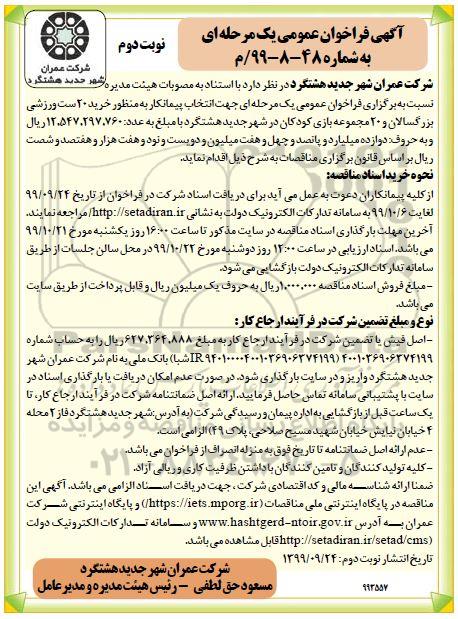 آگهی فراخوان عمومی یک مرحله ای
به شماره ۴۸-۸-۹۹/م
نوبت دوم
شرکت عمران
شهر جدید هشتگرد
شرکت عمران شهر جدید هشتگرد در نظر دارد با استناد به مصوبات هیئت مدیره
نسبت به برگزاری فراخوان عمومی یک مرحله ای جهت انتخاب پیمانکار به منظور خرید ۲۰ ست ورزشی
بزرگسالان و ۲۰ مجموعه بازی کودکان در شهر جدید هشتگرد با مبلغ به عدد: ۱۲,۵۴۷,۲۹۷,۷۶۰ ریال
و به حروف: دوازده میلیارد و پانصد و چهل و هفت میلیون و دویست و نود و هفت هزار و هفتصد و شصت
ریال بر اساس قانون برگزاری مناقصات به شرح ذیل اقدام نماید.
نحوه خرید اسناد مناقصه:
از کلیه پیمانکاران دعوت به عمل می آید برای دریافت اسناد شرکت در فراخوان از تاریخ ۹۹/۰۹/۲۴
لغایت ۹۹/۱۰/۶ به سامانه تدارکات الکترونیک دولت به نشانی http://setadiran.ir/ مراجعه نمایند.
آخرین مهلت بارگذاری اسناد مناقصه در سایت مذکور تا ساعت ۱۶:۰۰ روز یکشنبه مورخ ۹۹/۱۰/۲۱
می باشد. اسناد ارزیابی در ساعت ۱۲:۰۰ روز دوشنبه مورخ ۹۹/۱۰/۲۲ در محل سالن جلسات از طریق
سامانه تدارکات الکترونیک دولت بازگشایی می شود.
-مبلغ فروش اسناد مناقصه ۱,۰۰۰,۰۰۰ ریال به حروف یک میلیون ریال و قابل پرداخت از طریق سایت
می باشد.
نوع و مبلغ تضمین شرکت در فرآیند ارجاع کار:
-اصل فیش یا تضمین شرکت در فرآیند ارجاع کار به مبلغ ۶۲۷,۳۶۴,۸۸۸ ریال را به حساب شماره
۴۰۰۱۰۳۶۹۰۶۳۷۴۱۹۹ (شبا) بانک ملی به نام شرکت عمران شهر
جدید هشتگرد واریز و در سایت بارگذاری شود. در صورت عدم امکان دریافت یا بارگذاری اسناد در
سایت با پشتیبانی سامانه تماس حاصل فرمایید. ارائه اصل ضمانتنامه شرکت در فرآیند ارجاع کار، تا
یک ساعت قبل از بازگشایی به اداره پیمان و رسیدگی شرکت (به آدرس: شهر جدید هشتگرد فاز ۲ محله
۴ خیابان نیایش خیابان شهید مسیح صلاحی، پلاک ۴۹) الزامی است.
-عدم ارائه اصل ضمانتنامه تا تاریخ فوق به منزله انصراف از فراخوان می باشد.
-کلیه تولید کنندگان و تامین کنندگان با داشتن ظرفیت کاری و ریالی آزاد.
ضمنا ارائه شناسه ملی و کد اقتصادی شرکت، جهت دریافت اسناد الزامی می باشد. آگهی این
مناقصه در پایگاه اینترنتی ملی مناقصات (https://iets.mporg.ir/) و پایگاه اینترنتی شرکت
عمران به آدرس www.hashtgerd-ntoir.gov.ir و سامانه تدارکات الکترونیک دولت
(http://setadiran.ir/setad/cms) قابل مشاهده می باشد.
تاریخ انتشار نوبت دوم: ۱۳۹۹/۰۹/۲۴
۹۹۳۵۵۷
شرکت عمران شهر جدید هشتگرد
مسعود حق لطفی - رئیس هیئت مدیره و مدیر عامل